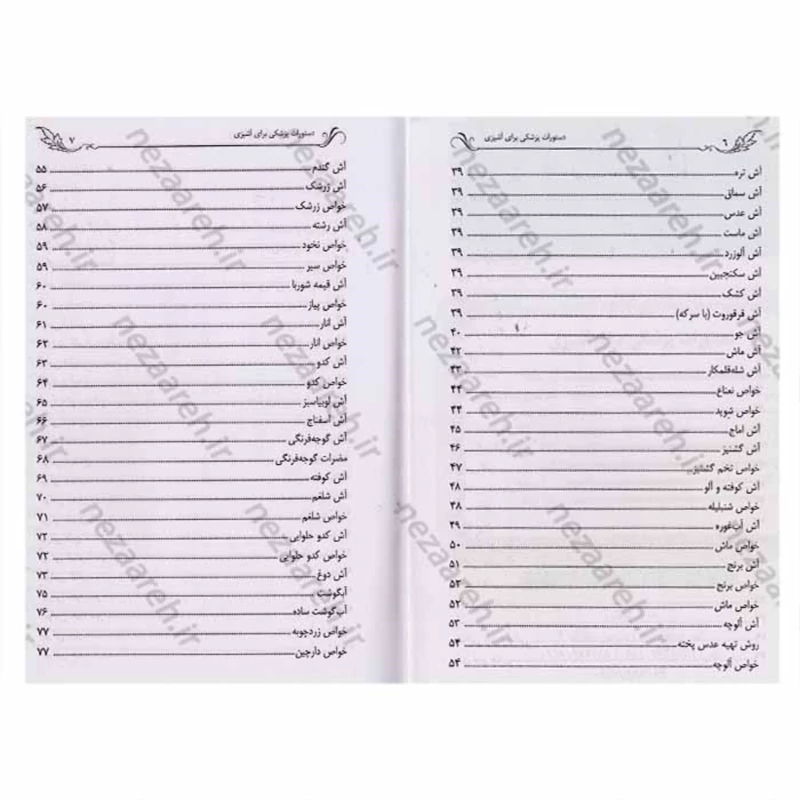 ۶ دستورات پزشکی برای آشپزی
آش تره ۳۹
آش سماق ۳۹
آش عدس ۳۹
آش ماست ۳۹
آش آلوزرد ۳۹
آش سکنجبین ۳۹
آش کشک ۳۹
آش قرقوروت (با سرکه) ۳۹
آش جو ۴۰
آش ماش ۴۲
آش شله‌قلمکار ۴۳
خواص نعناع ۴۴
خواص شوید ۴۴
آش اماج ۴۵
آش گشنیز ۴۶
خواص تخم گشنیز ۴۷
آش کوفته و آلو ۴۸
خواص شنبلیله ۴۸
آش آب‌غوره ۴۹
خواص ماش ۵۰
آش برنج ۵۱
خواص برنج ۵۲
خواص ماش ۵۲
آش آلوچه ۵۳
روش تهیه عدس پخته ۵۴
خواص آلوچه ۵۴
دستورات پزشکی برای آشپزی ۷
آش گندم ۵۵
آش زرشک ۵۶
خواص زرشک ۵۷
آش رشته ۵۸
خواص نخود ۵۹
خواص سیر ۵۹
آش قیمه شوربا ۶۰
خواص پیاز ۶۰
آش انار ۶۱
خواص انار ۶۲
آش کدو ۶۳
خواص کدو ۶۴
آش لوبیاسبز ۶۵
آش اسفناج ۶۶
آش گوجه‌فرنگی ۶۷
مضرات گوجه‌فرنگی ۶۸
آش کوفته ۶۹
آش شلغم ۷۰
خواص شلغم ۷۱
آش کدو حلوایی ۷۲
خواص کدو حلوایی ۷۲
آش دوغ ۷۳
آبگوشت ۷۵
آب‌گوشت ساده ۷۶
خواص زردچوبه ۷۷
خواص دارچین ۷۷
nezaareh.ir